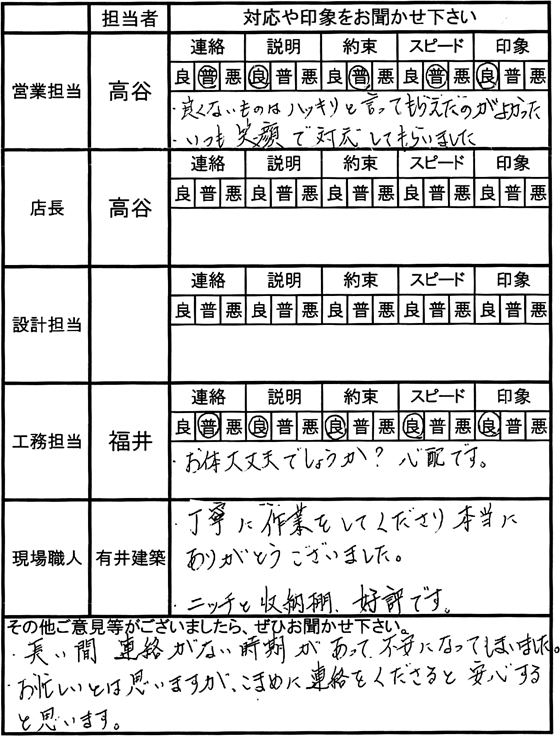 担当者 対応や印象をお聞かせ下さい
営業担当 高谷
連絡 説明 約束 スピード 印象
良 普 悪 良 普 悪 良 普 悪 良 普 悪 良 普 悪
・良くないものはハッキリと言ってもらえたのがよかった
・いつも笑顔で対応してもらいました
店長 高谷
連絡 説明 約束 スピード 印象
良 普 悪 良 普 悪 良 普 悪 良 普 悪 良 普 悪
設計担当
連絡 説明 約束 スピード 印象
良 普 悪 良 普 悪 良 普 悪 良 普 悪 良 普 悪
工務担当 福井
連絡 説明 約束 スピード 印象
良 普 悪 良 普 悪 良 普 悪 良 普 悪 良 普 悪
・お体大丈夫でしょうか? 心配です。
現場職人 有井建築
・丁寧に作業をしてくださり本当に
ありがとうございました。
・ニッチと収納棚、好評です。
その他ご意見等がございましたら、ぜひお聞かせ下さい。
・長い間 連絡がない時期があって、不安になってしまいました。
・お忙しいとは思いますが、こまめに連絡をくださると安心する
と思います。